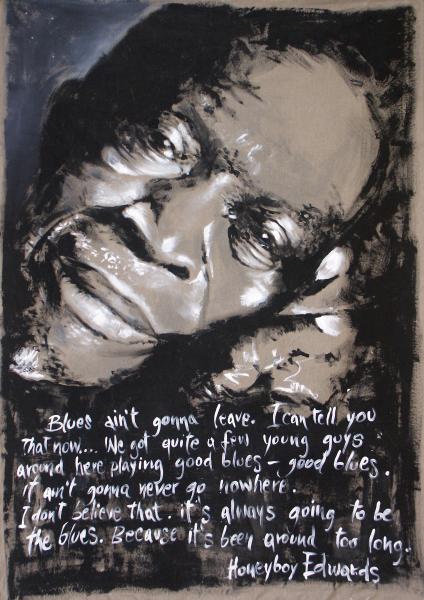 Blues ain't gonna leave. I can tell you
That now.... We got quite a few young guys
around here playing good blues - good blues.
it ain't gonna never go nowhere.
I don't believe that. it's always going to be
the blues. Because it's been around too long.
Honeyboy Edwards